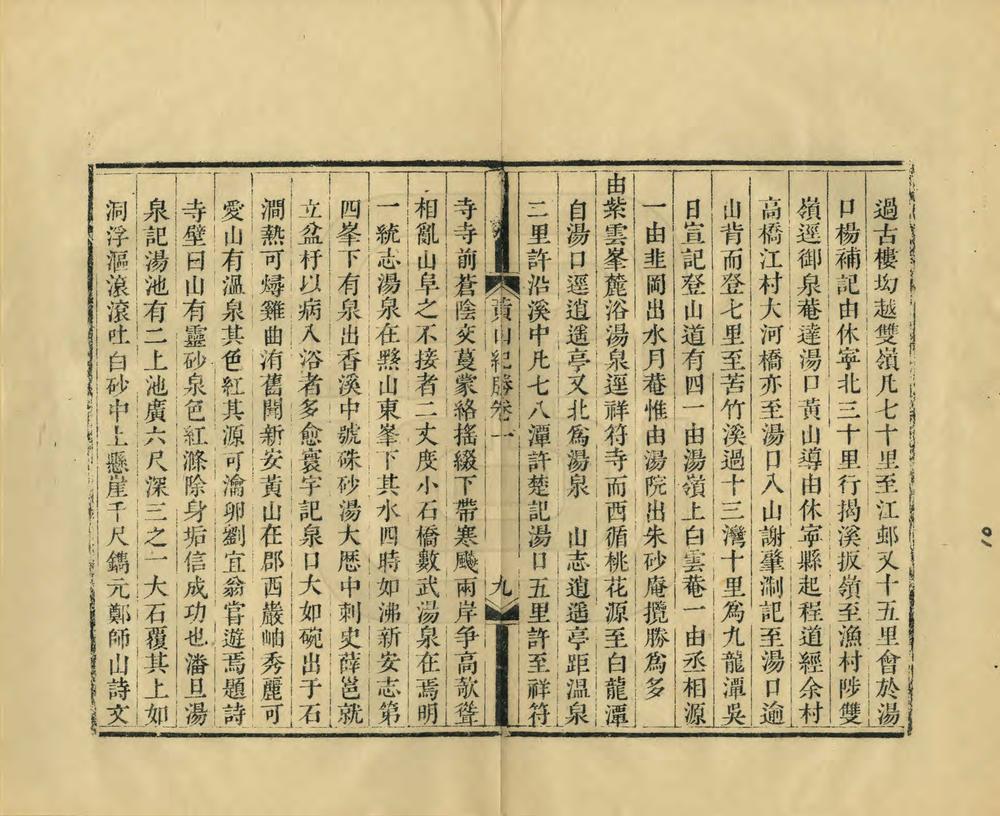 過古樓㘭越雙嶺凡七十里至江邨又十五里會於湯
口楊補記由休寧北三十里行揭溪扳嶺至漁村陟雙
嶺逕御泉菴達湯口黃山導由休寧縣起程道經余村
高橋江村大河橋亦至湯口入山謝肇淛記至湯口逾
山背而登七里至苦竹溪過十三灣十里爲九龍潭吳
日宣記登山道有四一由湯嶺上白雲菴一由丞相源
一由韭岡出水月菴惟由湯院出朱砂庵攬勝爲多
由紫雲峯麓浴湯泉逕祥符寺而西循桃花源至白龍潭
自湯口逕逍遙亭又北爲湯泉　山志逍遙亭距溫泉
二里許沿溪中凡七八潭許楚記湯口五里許至祥符
黃山紀勝卷一
九
寺寺前蒼陰交蔓蒙絡搖綴下帶寒颷兩岸争高欹聳
相亂山阜之不接者二丈度小石橋數武湯泉在焉明
一統志湯泉在黟山東峯下其水四時如沸新安志第
四峯下有泉出香溪中號硃砂湯大歷中刺史薛邕就
立盆杅以病入浴者多愈寰宇記泉口大如碗出于石
澗熱可燖雞曲洧舊聞新安黃山在郡西巖岫秀麗可
愛山有溫泉其色紅其源可瀹卵劉宜翁嘗遊焉題詩
寺壁曰山有靈砂泉色紅滌除身垢信成功也潘旦湯
泉記湯池有二上池廣六尺深三之一大石覆其上如
洞浮漚滾滾吐白砂中上懸崖千尺鐫元鄭師山詩文
10